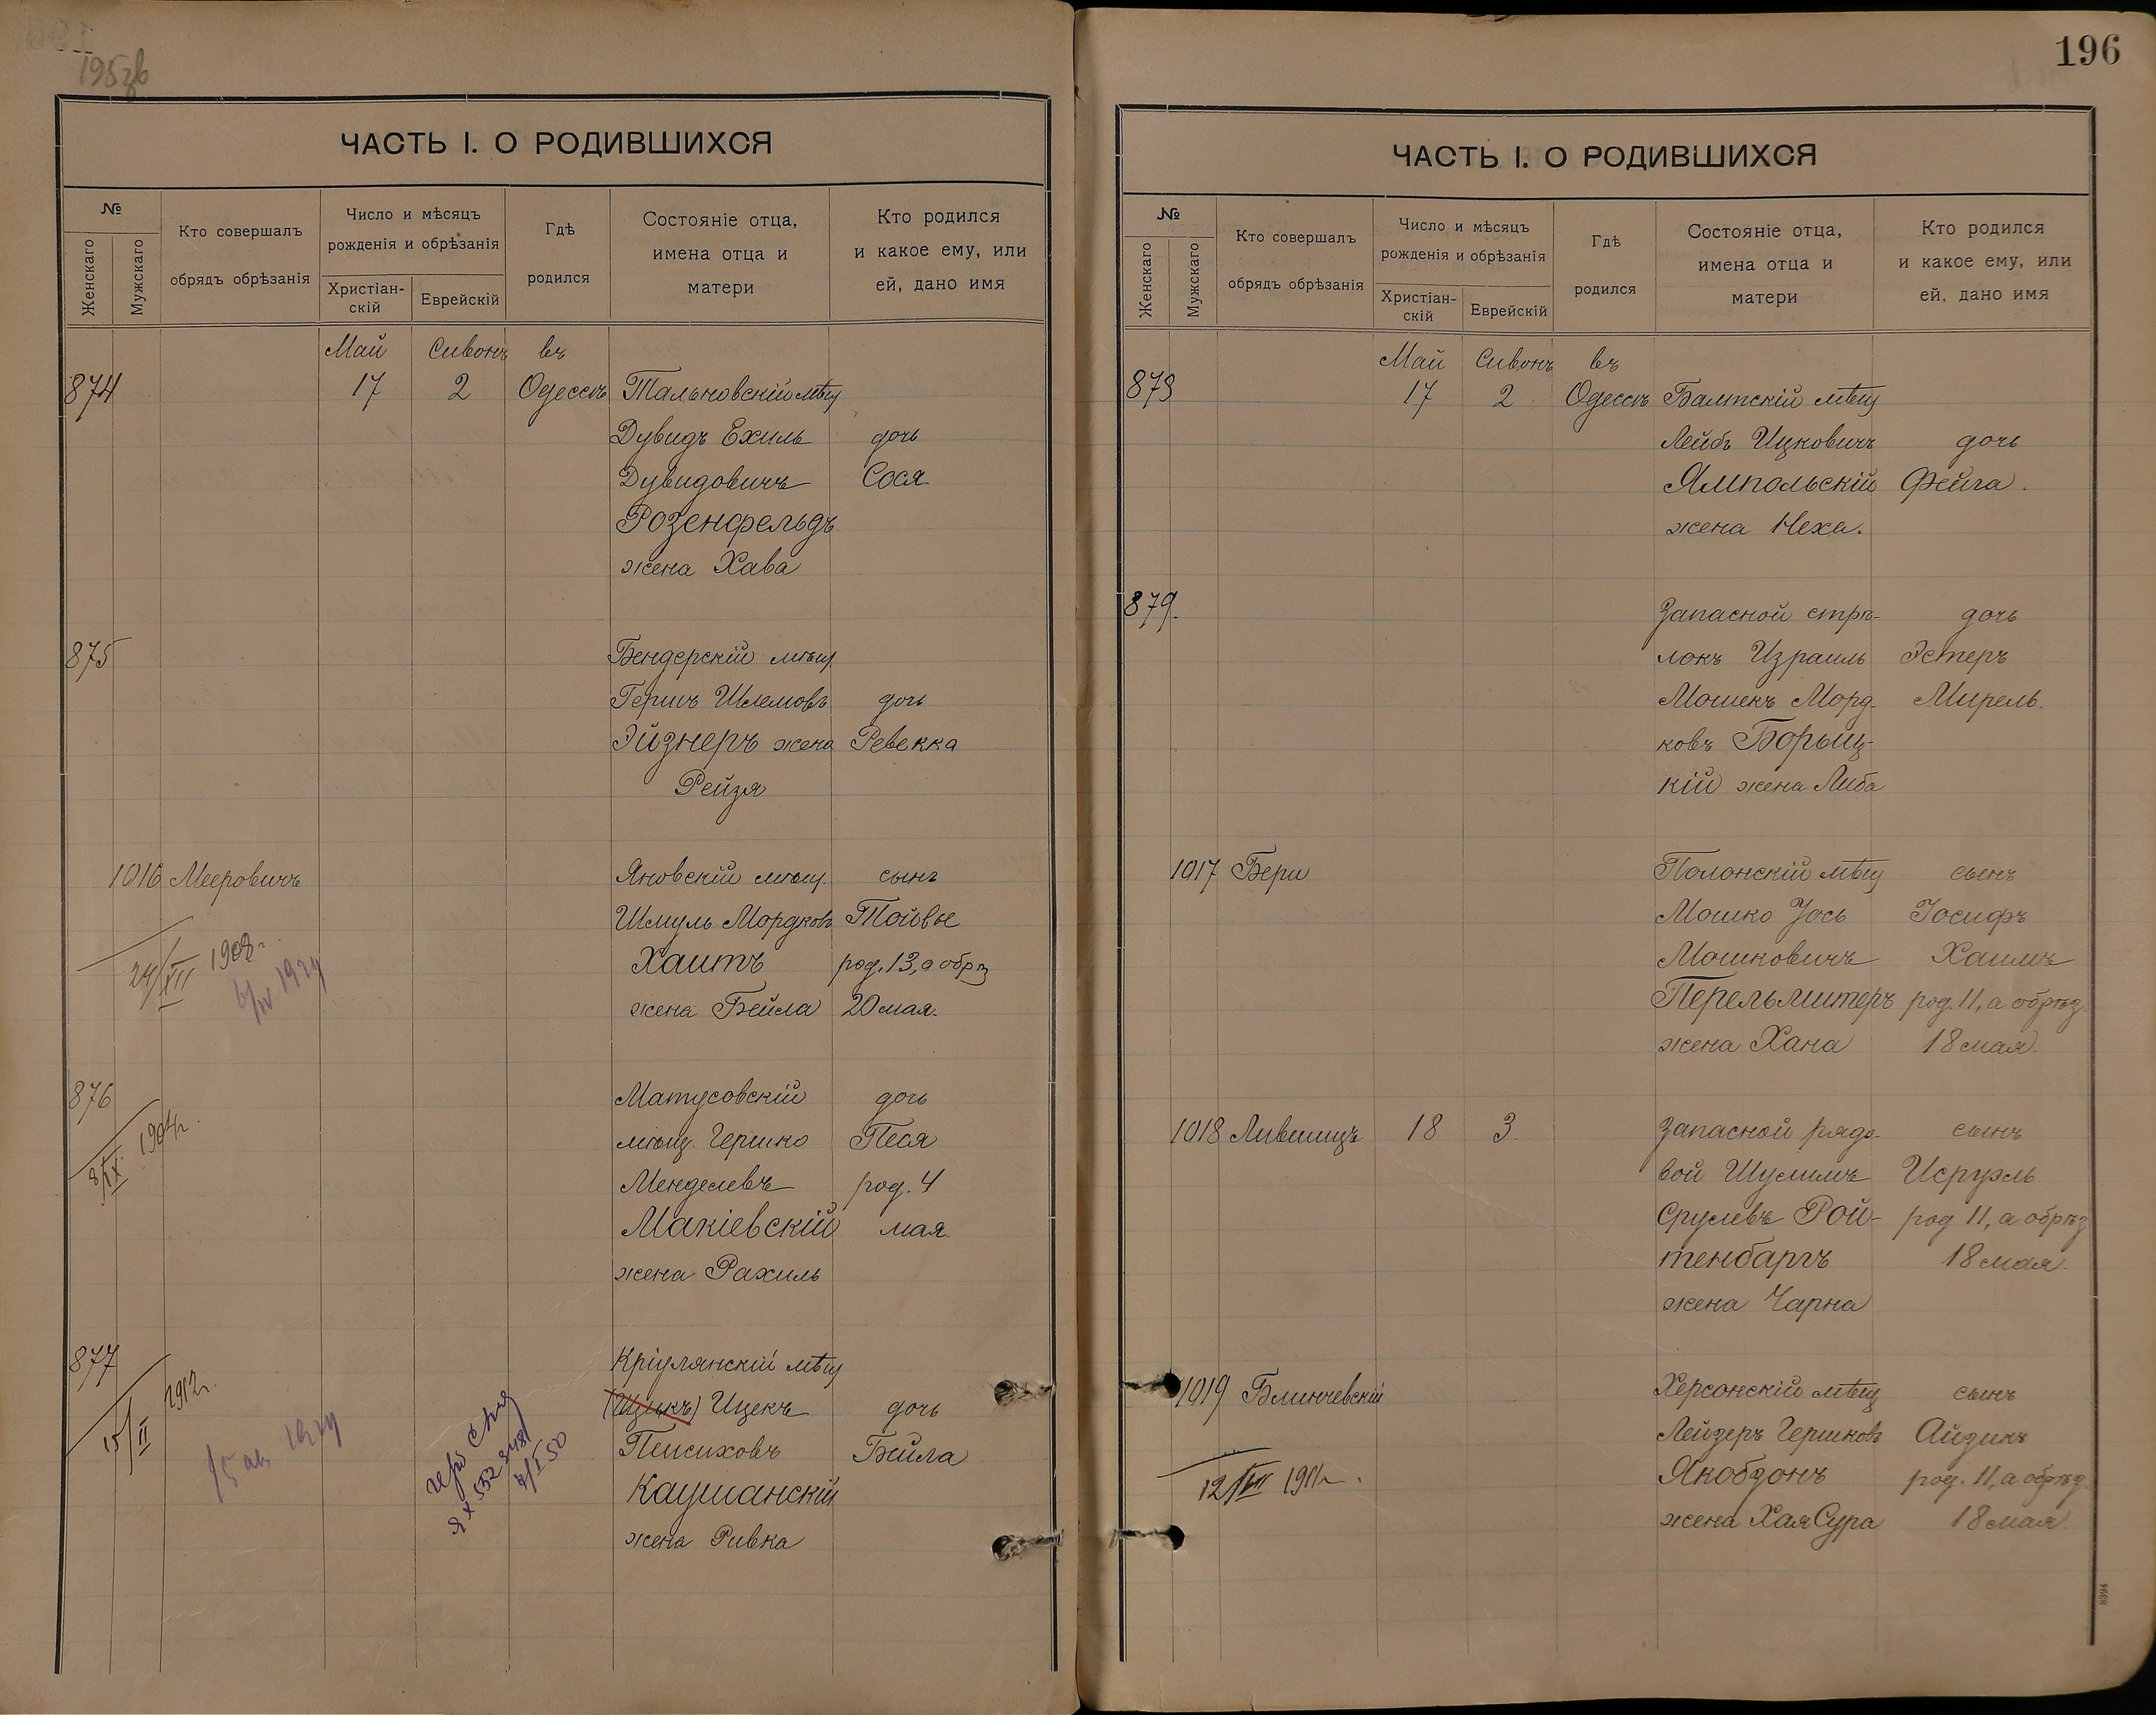 195 об
ЧАСТЬ I. О РОДИВШИХСЯ
№
Женскаго
Мужскаго
Кто совершалъ
обрядъ обрѣзанія
Число и мѣсяцъ
рожденія и обрѣзанія
Христіан-
скій
Еврейскій
Гдѣ
родился
Состояніе отца,
имена отца и
матери
Кто родился
и какое ему, или
ей, дано имя
Май Сивонъ въ
874 17 2 Одессѣ Тальновскій мѣщ
Дувидъ Ехиль дочь
Дувидовичъ Сося
Розенфельдъ
жена Хава
875 Бендерскій мѣщ.
Гершъ Шлемовъ дочь
Эйзнеръ жена Ревекка
Рейзя
1016 Мееровичъ Яновскій мѣщ. сынъ
Шмуль Мордковъ Тойвье
Хаитъ род. 13, а обрѣз
жена Бейла 20 мая.
24/XII 1908 г.
876 Матусовскій дочь
мѣщ. Гершко Песя
Менделевъ род. 4
Макіевскій мая.
жена Рахиль
8/IX 1904 г.
877 Кріулянскій мѣщ
(Ицикъ) Ицекъ дочь
Пейсиховъ Бейла
Каушанскій
жена Ривка
15/II 1912 г.
196
ЧАСТЬ I. О РОДИВШИХСЯ
№
Женскаго
Мужскаго
Кто совершалъ
обрядъ обрѣзанія
Число и мѣсяцъ
рожденія и обрѣзанія
Христіан-
скій
Еврейскій
Гдѣ
родился
Состояніе отца,
имена отца и
матери
Кто родился
и какое ему, или
ей, дано имя
Май Сивонъ въ
878 17 2 Одессѣ Балтскій мѣщ
Лейбъ Ицковичъ дочь
Ямпольскій Фейга.
жена Неха.
879. Запасной стрѣ- дочь
локъ Израиль Эстеръ
Мошекъ Морд- Мирель.
ковъ Борыщ-
кій жена Либа
1017 Бери Полонскій мѣщ сынъ
Мошко Іось Іосифъ
Мошковичъ Хаимъ
Перельмитеръ род. 11, а обрѣз.
жена Хана 18 мая
1018 Лившицъ 18 3. Запасной рядо- сынъ
вой Шулимъ Исруэль
Срулевъ Рой- род 11, а обрѣз
тенбаргъ 18 мая.
жена Чарна
1019 Блинчевскій Херсонскій мѣщ сынъ
Лейзеръ Гершковъ Айзикъ
Якобзонъ род. 11, а обрѣз.
жена Хая Сура 18 мая.
12/VII 1911 г.